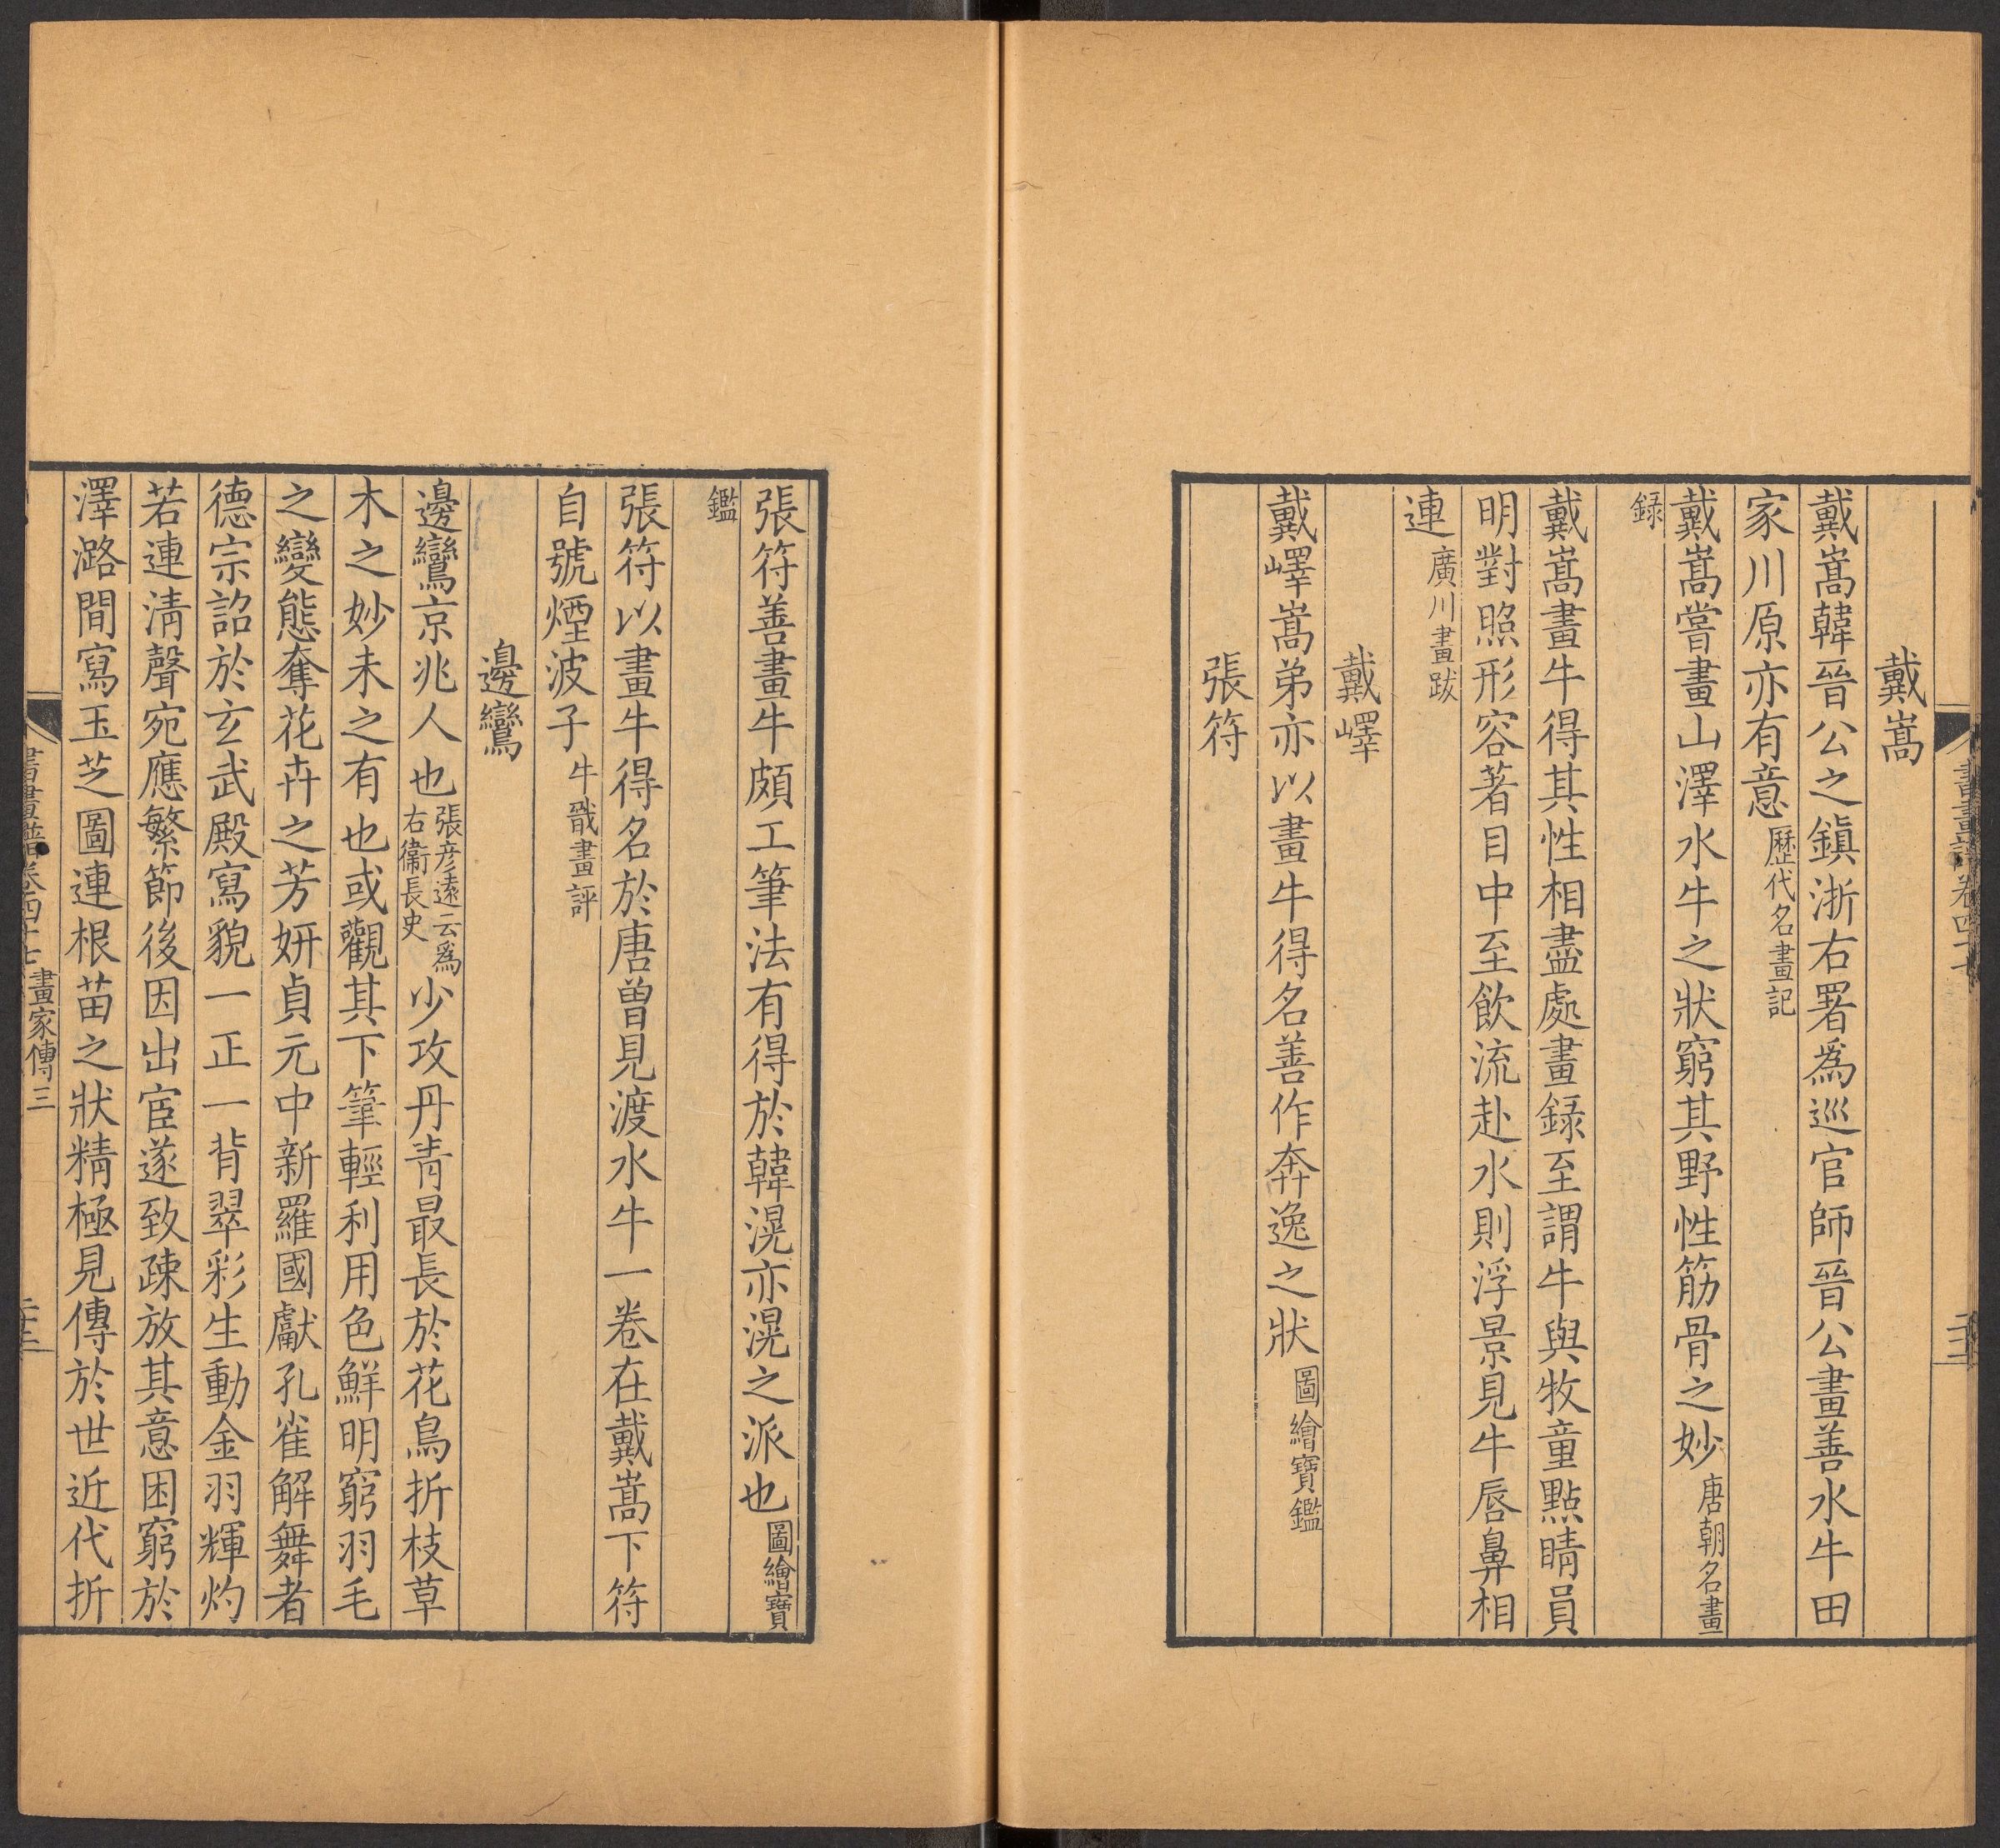 戴嵩
戴嵩韓晉公之鎮浙右署爲巡官師晉公畫善水牛田
家川原亦有意歷代名畫記
戴嵩嘗畫山澤水牛之狀窮其野性筋骨之妙唐朝名畫
録
戴嵩畫牛得其性相盡處畫録至謂牛與牧童點睛員
明對照形容著目中至飲流赴水則浮景見牛唇鼻相
連廣川畫跋
戴嶧
戴嶧嵩弟亦以畫牛得名善作奔逸之狀圖繪寶鑑
張符
張符善畫牛頗工筆法有得於韓滉亦滉之派也圖繪寶
鑑
張符以畫牛得名於唐曾見渡水牛一卷在戴嵩下符
自號煙波子牛戩畫評
邊鸞
邊鸞京兆人也張彦遠云爲右衞長史少攻丹青最長於花鳥折枝草
木之妙未之有也或觀其下筆輕利用色鮮明窮羽毛
之變態奪花卉之芳妍貞元中新羅國獻孔雀解舞者
德宗詔於玄武殿寫貌一正一背翠彩生動金羽輝灼
若連清聲宛應繁節後因出宦遂致疎放其意困窮於
澤潞間寫玉芝圖連根苗之狀精極見傳於世近代折
書畫譜卷四十七 畫家傳三